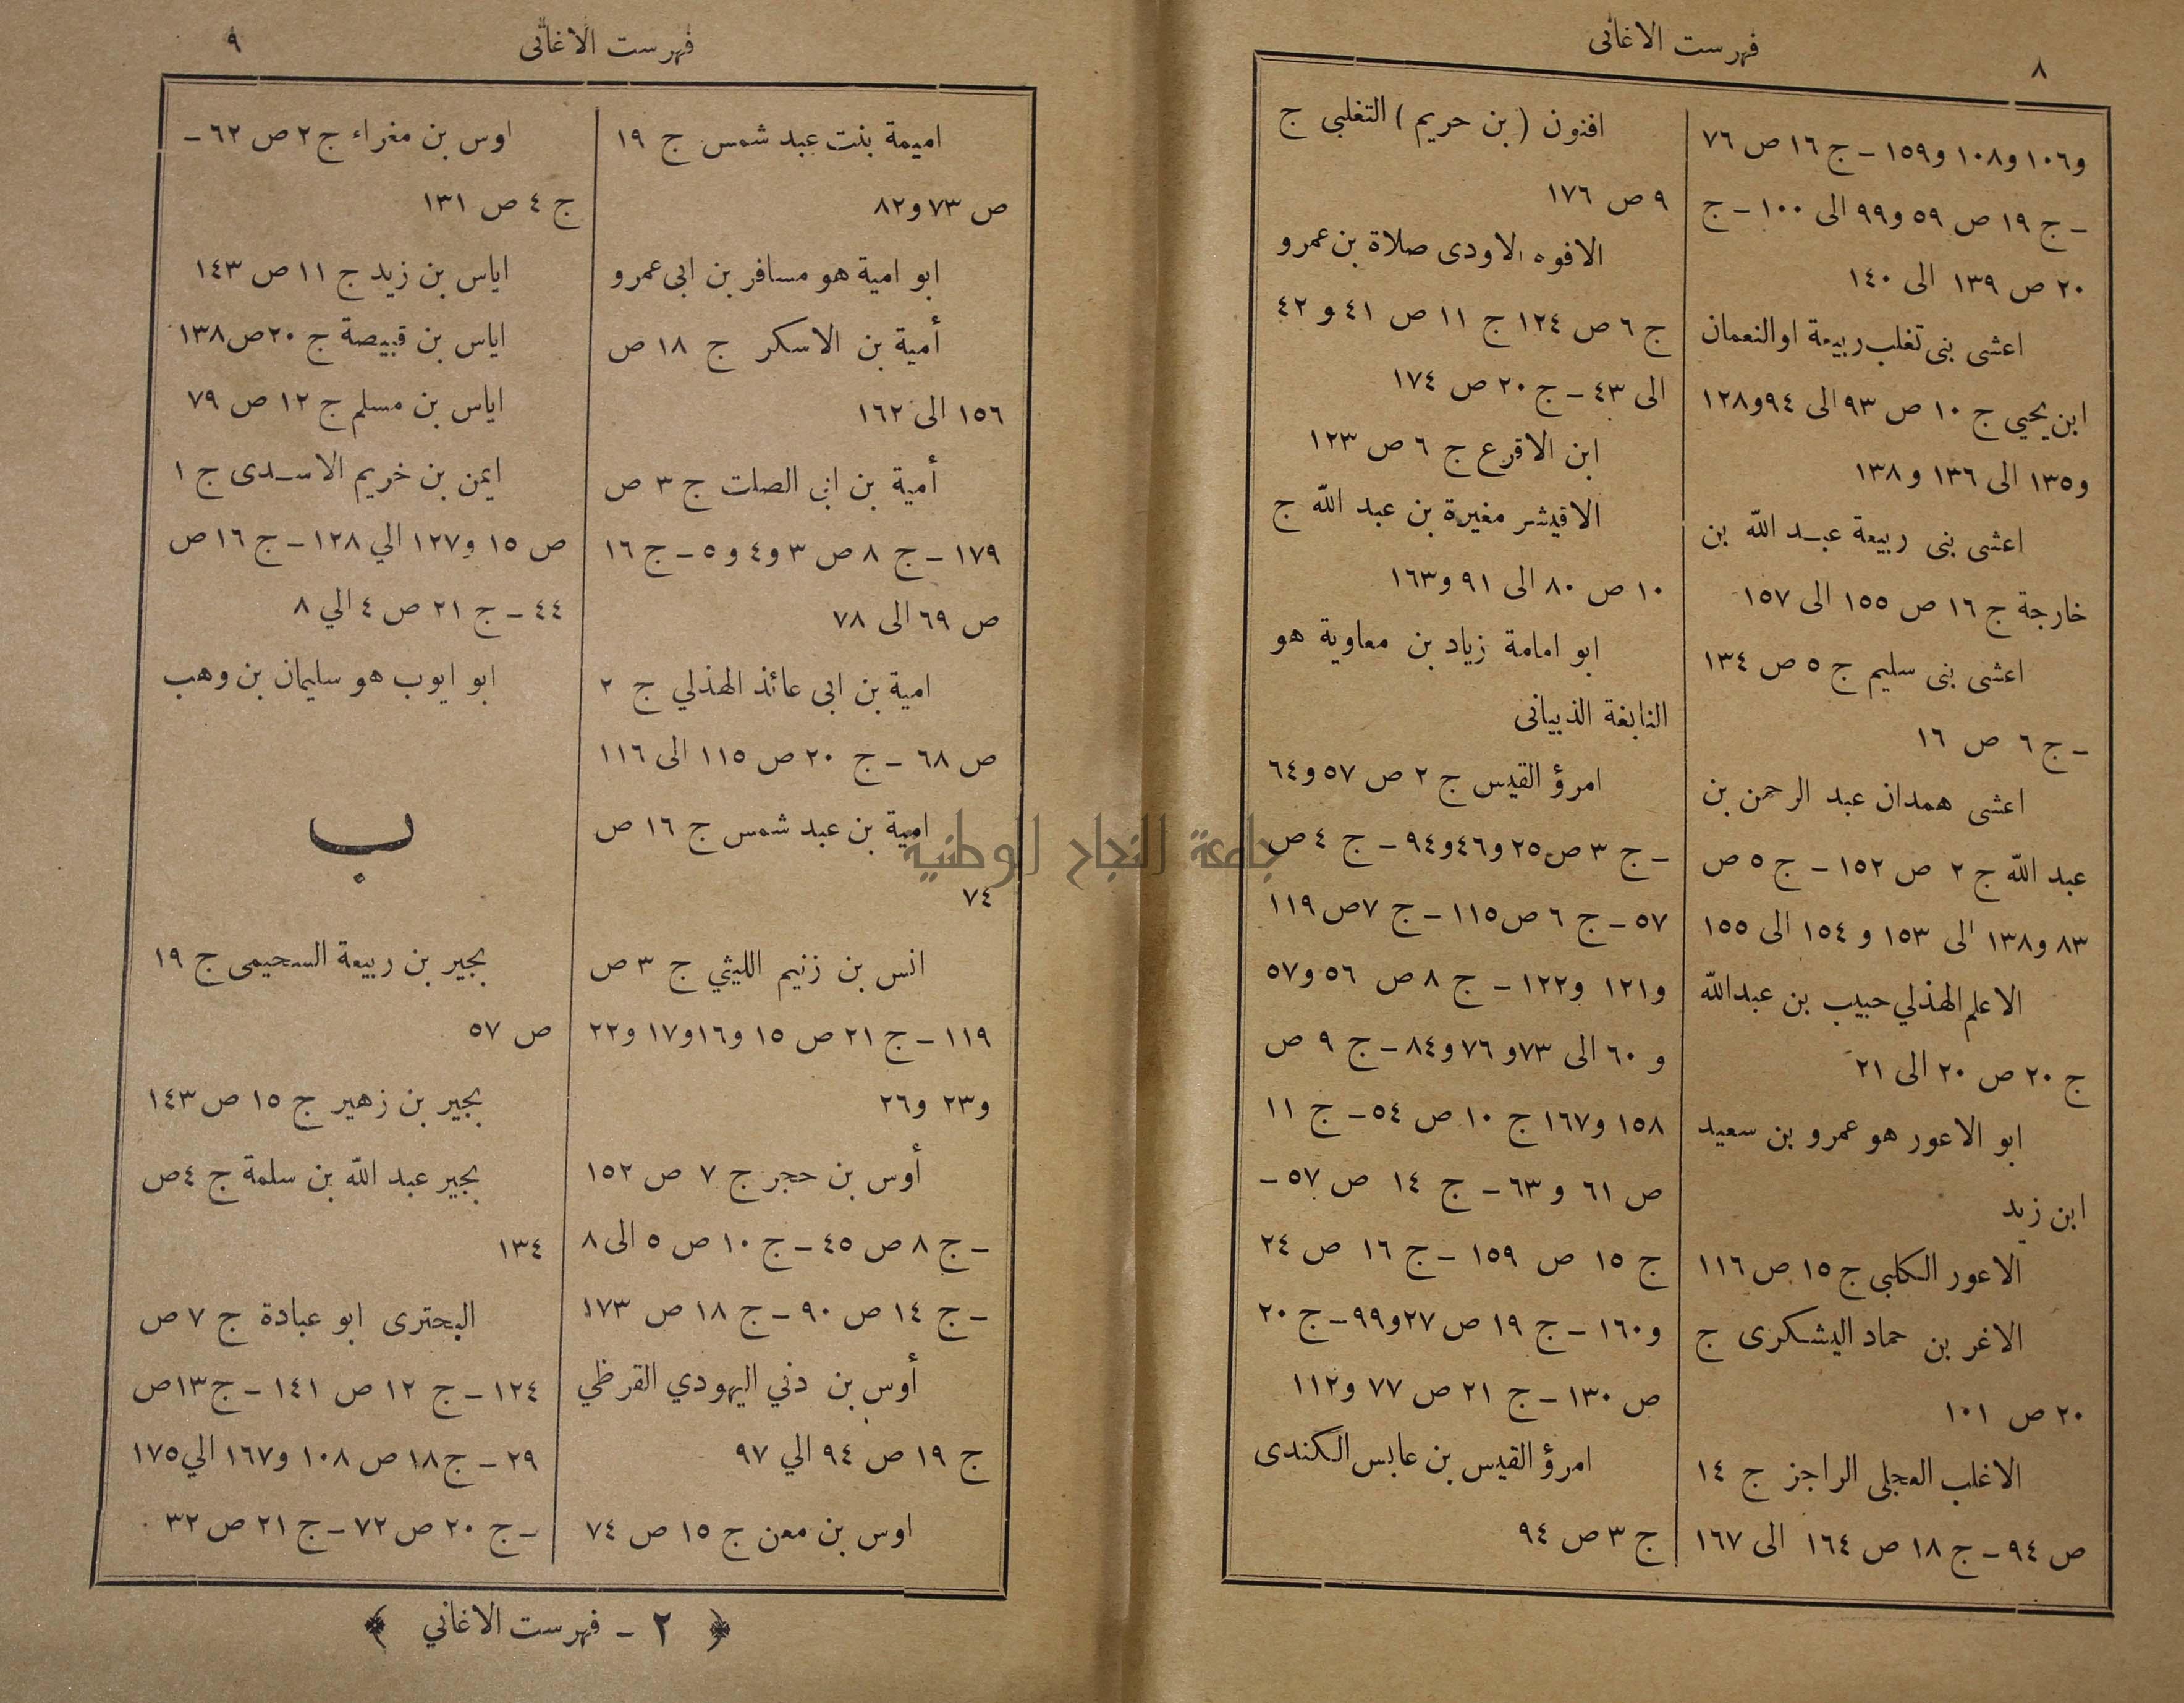 فهرست الاغانى
٨
و١٠٦ و١٠٨ و١٥٩ – ج ١٦ ص ٧٦
– ج ١٩ ص ٥٩ و٩٩ الى ١٠٠ – ج
٢٠ ص ١٣٩ الى ١٤٠
اعشى بنى تغلب ربيعة او النعمان
ابن يحيي ج ١٠ ص ٩٣ الى ٩٤ و١٢٨
و١٣٥ الى ١٣٦ و ١٣٨
اعشى بنى ربيعة عبد الله بن
خارجة ج ١٦ ص ١٥٥ الى ١٥٧
اعشى بنى سليم ج ٥ ص ١٣٤
– ج ٦ ص ١٦
اعشى همدان عبد الرحمن بن
عبد الله ج ٢ ص ١٥٢ – ج ٥ ص
٨٣ و١٣٨ الى ١٥٣ و ١٥٤ الى ١٥٥
الاعلم الهذلي حبيب بن عبدالله
ج ٢٠ ص ٢٠ الى ٢١
ابو الاعور هو عمرو بن سعيد
ابن زيد
الاعور الكلبى ج ١٥ ص ١١٦
الاغر بن حماد اليشكرى ج
٢٠ ص ١٠١
الاغلب العجلى الراجز ج ١٤
ص ٩٤ – ج ١٨ ص ١٦٤ الى ١٦٧
افنون (بن حريم) التغلبى ج
٩ ص ١٧٦
الافوه الاودى صلاة بن عمرو
ج ٦ ص ١٢٤ ج ١١ ص ٤١ و ٤٢
الى ٤٣ – ج ٢٠ ص ١٧٤
ابن الاقرع ج ٦ ص ١٢٣
الاقيشر مغيرة بن عبد الله ج
١٠ ص ٨٠ الى ٩١ و١٦٣
ابو امامة زياد بن معاوية هو
النابغة الذبيانى
امرؤ القيس ج ٢ ص ٥٧ و٦٤
– ج ٣ ص ٢٥ و٤٦ و٩٤ – ج ٤ ص
٥٧ – ج ٦ ص ١١٥ – ج ٧ ص ١١٩
و١٢١ و١٢٢ – ج ٨ ص ٥٦ و٥٧
و ٦٠ الى ٧٣ و ٧٦ و٨٤ – ج ٩ ص
١٥٨ و١٦٧ ج ١٠ ص ٥٤ – ج ١١
ص ٦١ و ٦٣ – ج ١٤ ص ٥٧ –
ج ١٥ ص ١٥٩ – ج ١٦ ص ٢٤
و١٦٠ – ج ١٩ ص ٢٧ و٩٩ – ج ٢٠
ص ١٣٠ – ج ٢١ ص ٧٧ و١١٢
امرؤ القيس بن عابس الكندى
ج ٣ ص ٩٤
فهرست الاغانى
٩
اميمة بنت عبد شمس ج ١٩
ص ٧٣ و٨٢
ابو امية هو مسافر بن ابى عمرو
أمية بن الاسكر ج ١٨ ص
١٥٦ الى ١٦٢
أمية بن ابى الصلت ج ٣ ص
١٧٩ – ج ٨ ص ٣ و٤ و ٥ – ج ١٦
ص ٦٩ الى ٧٨
امية بن ابى عائذ الهذلي ج ٢
ص ٦٨ – ج ٢٠ ص ١١٥ الى ١١٦
امية بن عبد شمس ج ١٦ ص
٧٤
انس بن زنيم الليثي ج ٣ ص
١١٩ – ج ٢١ ص ١٥ و١٦ و١٧ و٢٢
و٢٣ و٢٦
أوس بن حجر ج ٧ ص ١٥٢
– ج ٨ ص ٤٥ – ج ١٠ ص ٥ الى ٨
– ج ١٤ ص ٩٠ – ج ١٨ ص ١٧٣
أوس بن دني اليهودي القرظي
ج ١٩ ص ٩٤ الي ٩٧
اوس بن معن ج ١٥ ص ٧٤
اوس بن مغراء ج ٢ ص ٦٢ –
ج ٤ ص ١٣١
اياس بن زيد ج ١١ ص ١٤٣
اياس بن قبيصة ج ٢٠ ص ١٣٨
اياس بن مسلم ج ١٢ ص ٧٩
ايمن بن خريم الاسدى ج ١
ص ١٥ و١٢٧ الي ١٢٨ – ج ١٦ ص
٤٤ – ج ٢١ ص ٤ الي ٨
ابو ايوب هو سليمان بن وهب
ب
بجير بن ربيعة السحيمى ج ١٩
ص ٥٧
بجير بن زهير ج ١٥ ص ١٤٣
بجير عبد الله بن سلمة ج ٤ ص
١٣٤
البحترى ابو عبادة ج ٧ ص
١٢٤ – ج ١٢ ص ١٤١ – ج ١٣ ص
٢٩ – ج ١٨ ص ١٠٨ و١٦٧ الي ١٧٥
– ج ٢٠ ص ٧٢ – ج ٢١ ص ٣٢
﴿ ٢ – فهرست الاغاني ﴾
جامعة النجاح الوطنية